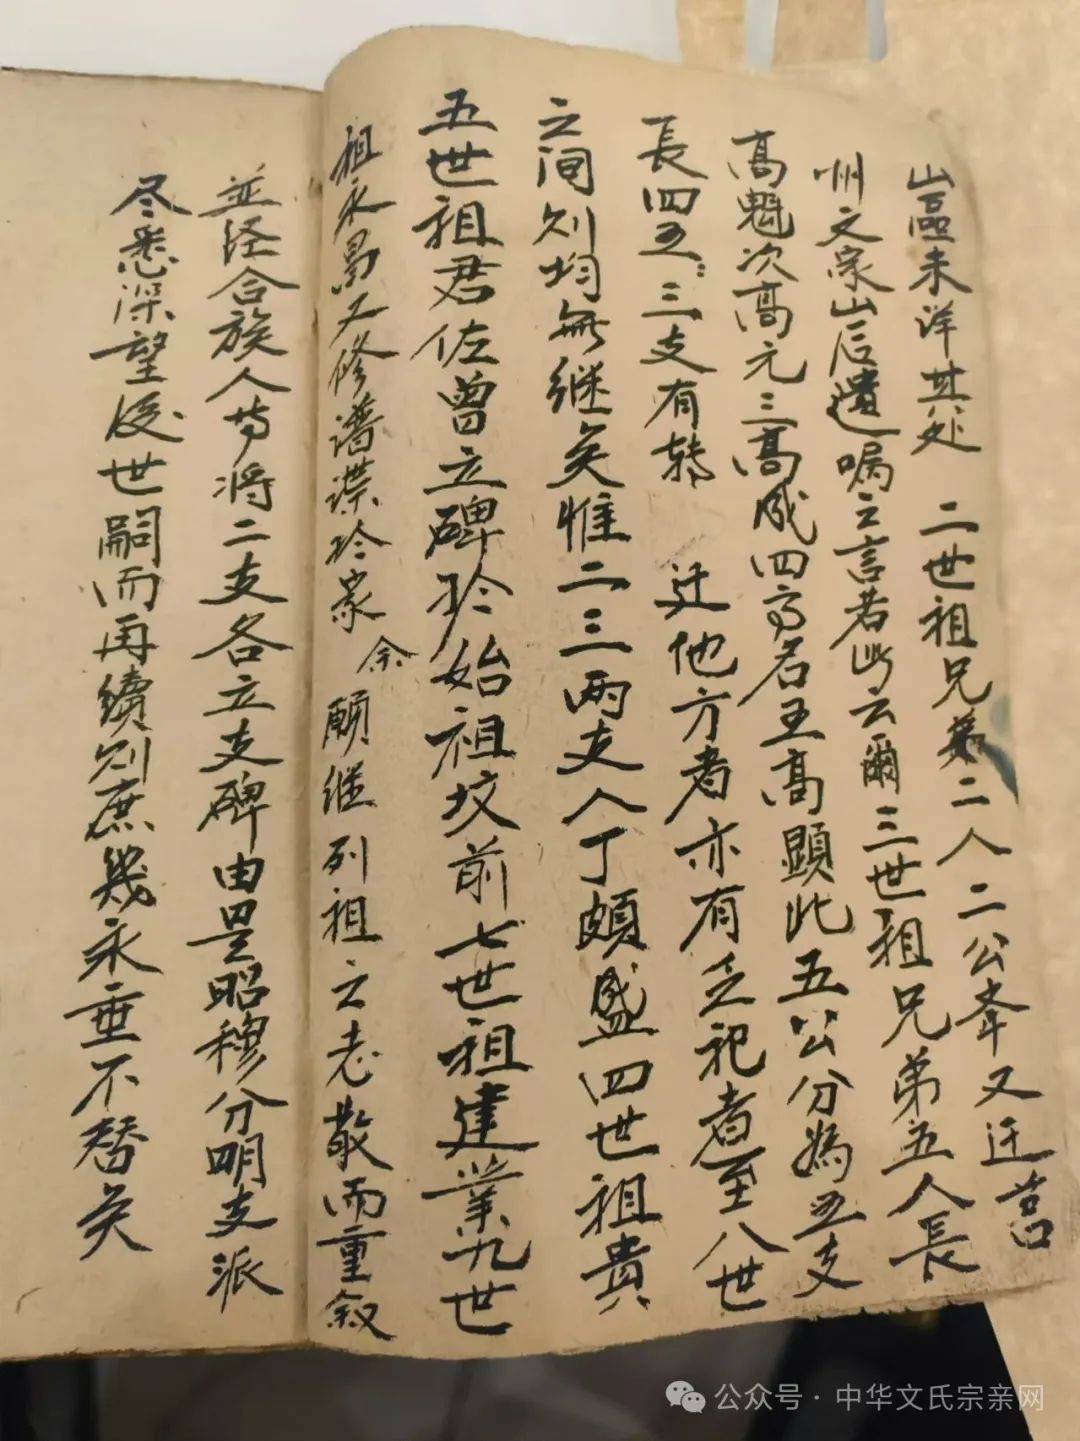 崮未详其处 二世祖兄弟二人二公率又迁莒
州文家山后遗嘱之言若此云爾三世祖兄弟五人長
高魁次高元三高成四高名五高顕此五公分為五支
長四五三支有转 迁他方者亦有乏祀者至八世
之间则均無继矣惟二三两支人丁頗盛四世祖貴
五世祖君佐曾立碑於始祖坟前七世祖建業九世
祖永昌又修谱牒於家 余願继列祖之志敬而重叙
並经合族人等将二支各立支碑由是昭穆分明支派
尽悉深望後世嗣而再續则庶幾永垂不替矣
公众号·中华文氏宗亲网